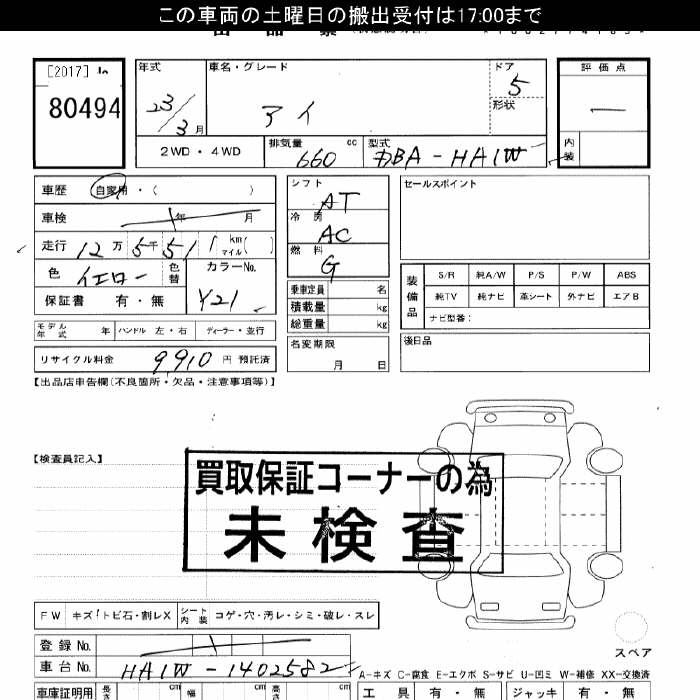 この車両の土曜日の搬出受付は17:00まで
[2017]
80494
年式
23/3月
車名・グレード
アイ
ドア
5
形状
評価点
内装
2WD・4WD
排気量
660 cc
型式
DBA-HA1W
車歴 自家用・( )
車検 年 月
走行 12万 5千 51 km マイル( )
色 イエロー 色替
カラーNo.
Y21
保証書 有・無
シフト
AT
冷房
AC
燃料
G
乗車定員 名
積載量 kg
総重量 kg
名変期限
月 日
セールスポイント
装備品
S/R 純A/W P/S P/W ABS
純TV 純ナビ 革シート 外ナビ エアB
ナビ型番:
後日品
モデル年式 年 ハンドル 左・右 ディーラー・並行
リサイクル料金 9,910 円 預託済
【出品店申告欄(不良箇所・欠品・注意事項等)】
【検査員記入】
買取保証コーナーの為
未検査
FW キズ・トビ石・割レX シート内装 コゲ・穴・汚レ・シミ・破レ・スレ
スペア
登録 No.
車台 No. HA1W-1402582
A-キズ C-腐食 E-エクボ S-サビ U-凹ミ W-補修 XX-交換済
車庫証明用 長さ cm 幅 cm 高さ cm
工具 有・無 ジャッキ 有・無